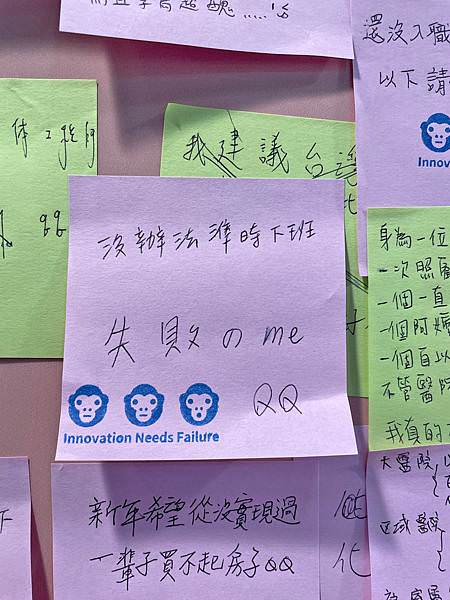 超醜
還沒入職
以下請
Innov
我建議台
QQ
沒辦法準時下班
失敗の me
QQ
Innovation Needs Failure
身為一位
一次照顧
一個一直
一個阿嬤
一個自以
不管醫院
我真的
大醫院
区域醫院
新年希望從沒實現過
一輩子買不起房子QQ